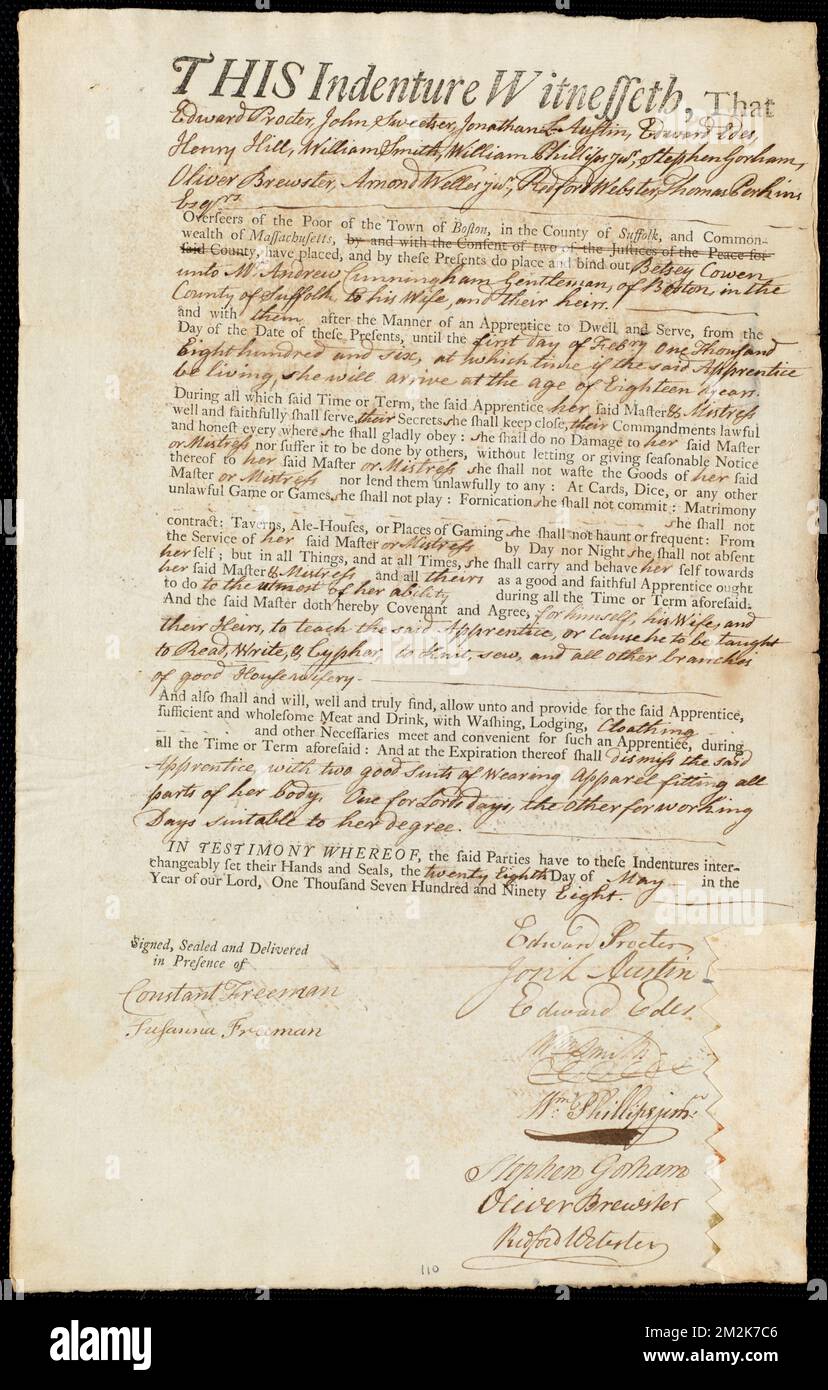 THIS Indenture Witneſſeth, That
Edward Procter, John Sweetser, Jonathan L Austin, Edward Edes,
Henry Hill, William Smith, William Phillips junr, Stephen Gorham,
Oliver Brewster, Arnond Welles junr, Redford Webster, Thomas Perkins
Esqrs
Overſeers of the Poor of the Town of Boſton, in the County of Suffolk, and Common-
wealth of Maſſachuſetts, by and with the Conſent of two of the Juſtices of the Peace for
ſaid County, have placed, and by theſe Preſents do place and bind out Betsey Cowen
unto Mr Andrew Cunningham Gentleman, of Boston, in the
County of Suffolk to his Wife, and their heirs.
and with them after the Manner of an Apprentice to Dwell and Serve, from the
Day of the Date of theſe Preſents, until the first day of Febry One Thousand
Eight hundred and six, at which time if the said Apprentice
be living, she will arrive at the age of Eighteen Years.
During all which ſaid Time or Term, the ſaid Apprentice her ſaid Master & Mistress
well and faithfully ſhall ſerve, their Secrets she ſhall keep cloſe, their Commandments lawful
and honeſt every where she ſhall gladly obey: she ſhall do no Damage to her ſaid Maſter
or Mistress nor ſuffer it to be done by others, without letting or giving ſeaſonable Notice
thereof to her ſaid Maſter or Mistress she ſhall not waſte the Goods of her ſaid
Maſter or Mistress nor lend them unlawfully to any: At Cards, Dice, or any other
unlawful Game or Games she ſhall not play: Fornication she ſhall not commit: Matrimony
she ſhall not
contract: Taverns, Ale-Houſes, or Places of Gaming she ſhall not haunt or frequent: From
the Service of her ſaid Maſter or Mistress by Day nor Night she ſhall not abſent
her ſelf; but in all Things, and at all Times, she ſhall carry and behave her ſelf towards
her ſaid Maſter & Mistress and all theirs as a good and faithful Apprentice ought
to do to the utmost of her ability during all the Time or Term aforeſaid.
And the ſaid Maſter doth hereby Covenant and Agree, for himself, his Wife, and
their Heirs, to teach the said Apprentice, or cause he to be taught
to Read, Write, & Cypher to Knit, sew, and all other branches
of good Housewifery
And alſo ſhall and will, well and truly find, allow unto and provide for the ſaid Apprentice,
ſufficient and wholeſome Meat and Drink, with Waſhing, Lodging, Cloathing
and other Neceſſaries meet and convenient for ſuch an Apprentice, during
all the Time or Term aforeſaid: And at the Expiration thereof ſhall dismiss the said
Apprentice, with two good Suits of Wearing Apparel fitting all
parts of her body, One for Lords days, the other for working
Days suitable to her degree.
IN TESTIMONY WHEREOF, the ſaid Parties have to theſe Indentures inter-
changeably ſet their Hands and Seals, the twenty Eighth Day of May in the
Year of our Lord, One Thouſand Seven Hundred and Ninety Eight.
Signed, Sealed and Delivered
in Preſence of
Constant Freeman
Susanna Freeman
Edward Procter
Jona L Austin
Edward Edes
Wm Smith
Wm Phillips junr.
Stephen Gorham
Oliver Brewster
Redford Webster
110
alamy
alamy
Image ID: 2M2K7C6
www.alamy.com